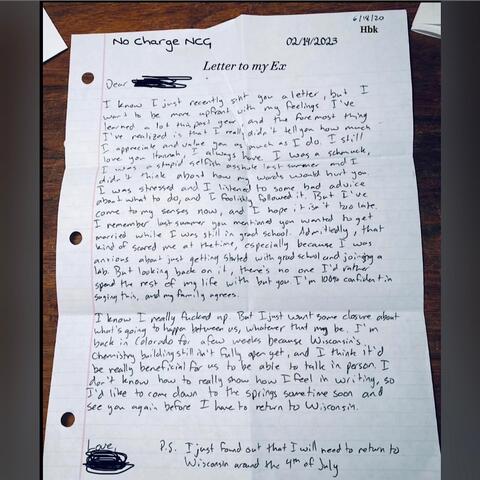 6/18/20
Hbk
No Charge NCG
02/14/2023
Letter to my Ex
Dear
I know I just recently sent you a letter, but I
want to be more upfront with my feelings I've
learned a lot this past year, and the foremost thing
I've realized is that I really didn't tell you how much
I appreciate and value you as much as I do. I still
love you Hannah, I always have. I was a schmuck,
I was a stupid selfish asshole last summer and I
didn't think about how my words would hurt you.
I was stressed and I listened to some bad advice
about what to do, and I foolishly followed it. But I've
come to my senses now, and I hope it isn't too late.
I remember last summer you mentioned you wanted to get
married while I was still in grad school. Admittedly, that
kind of scared me at the time, especially because I was
anxious about just getting started with grad school and joining a
lab. But looking back on it, there's no one I'd rather
spend the rest of my life with but you I'm 100% confident in
saying this, and my family agrees.
I know I really fucked up. But I just want some closure about
what's going to happen between us, whatever that may be. I'm
back in Colorado for a few weeks because Wisconsin's
Chemistry building still isn't fully open yet, and I think it'd
be really beneficial for us to be able to talk in person. I
don't know how to really show how I feel in writing, so
I'd like to come down to the springs sometime soon and
see you again before I have to return to Wisconsin.
Love,
P.S. I just found out that I will need to return to
Wisconsin around the 4th of July